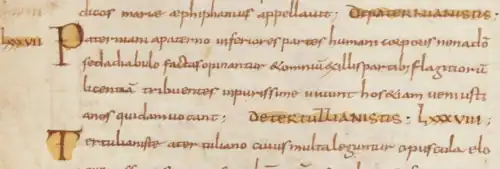 dicos mariæ æphiphanius appellavit; De paternianistis.
lxxxvii Paterniani apaterno inferiores partes humani corporis nonadō
sed adiabulo factas opinantur & omniū & illis partib; flagitiorū
licentiā tribuentes inpurissime vivunt hos & iam venusti
anos quidam vocant; De tertullianistis. lxxxviii;
Tertulianiste atertuliano cuius multa leguntur opuscula elo